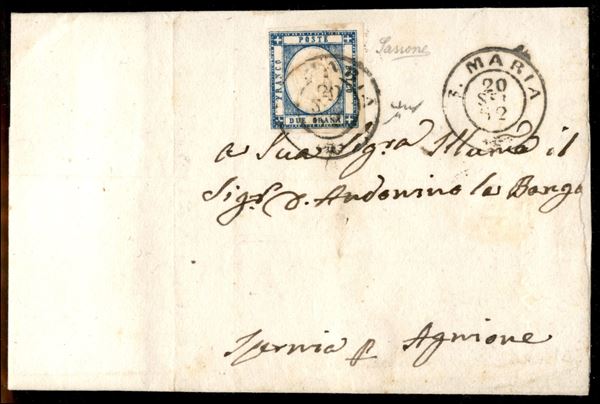 FRANCO POSTE
DUE GRANA
Sassone
S. MARIA
20
SET
62
a Sua Sigra Illuma il
Sigr D. Andonino la Banga
Isernia p Agnione